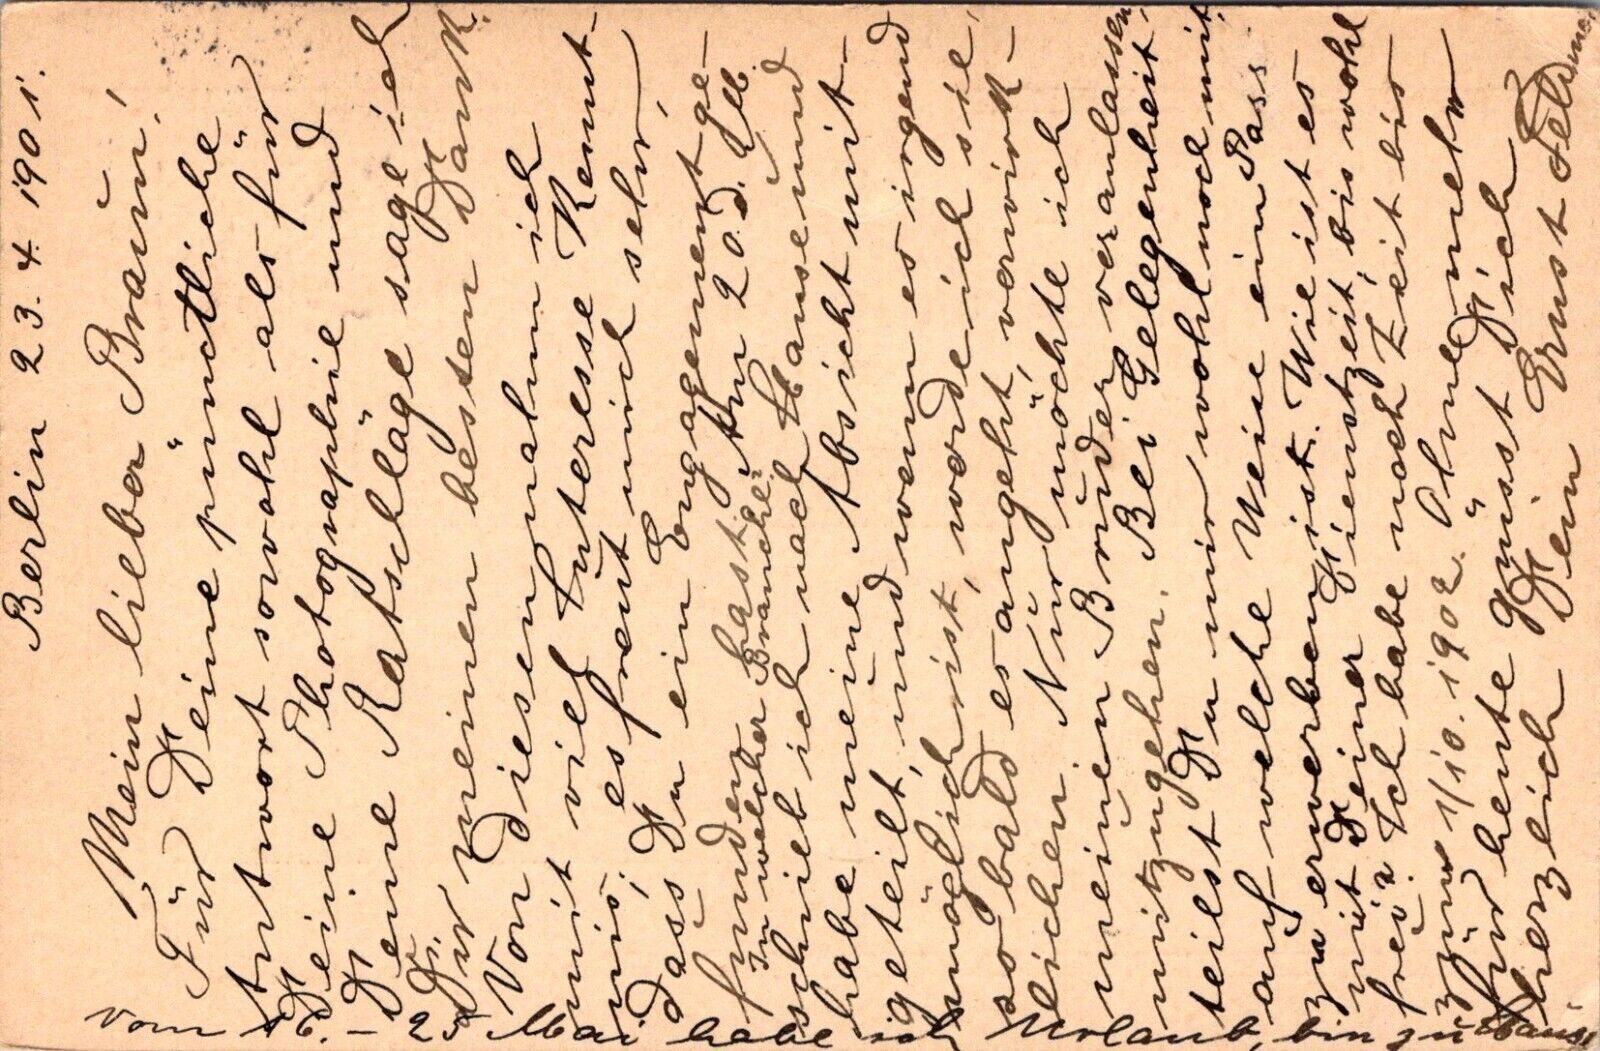 Berlin 23. 4. 1901.
Mein lieber Braun!
Für Deine pünctliche
Antwort sowohl als für
Deine Photographie und
Deine Ratschläge sage ich
Dir meinen besten Dank.
Von diesen nahm ich
mit viel Interesse Kennt-
nis; es freut mich sehr,
dass Du ein Engagement ge-
funden hast.
In welcher Branche?
Am 20. d. Mt.
schrieb ich nach Hause und
habe meine Absicht mit-
geteilt, und wenn es irgend
möglich ist, werde ich sie,
so bald es angeht, verwirk-
lichen. Nur möchte ich
meinen Bruder veranlassen,
mitzugehen. Bei Gelegenheit
teilst Du mir wohl noch mit,
auf welche Weise ein Pass
zu erwerben ist. Wie ist es
mit Deiner Dienstzeit, bis wohl
frei? Ich habe noch Zeit bis
zum 1/10. 1902. Ohne mehr
für heute grüsst Dich
herzlich Dein Ernst
vom 16. - 25 Mai habe ich Urlaub, bin zu Hause